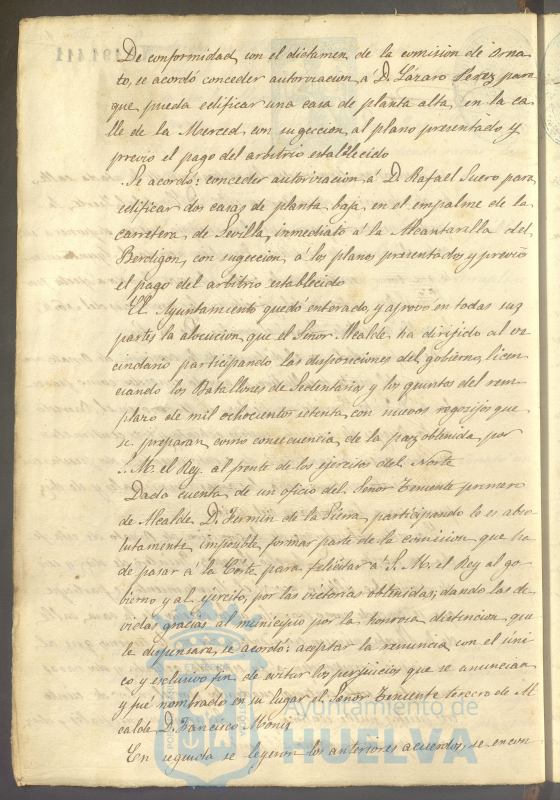 De conformidad con el dictamen de la comision de Orna-
to, se acordó conceder autorizacion a D. Lázaro Perez para
que pueda edificar una casa de planta alta en la ca-
lle de la Merced con sugeccion al plano presentado y
previo el pago del arbitrio establecido
Se acordó: conceder autorizacion á D. Rafael Suero para
edificar dos casas de planta baja en el empalme de la
carretera de Sevilla, inmediato á la Alcantarilla del
Berdigon, con sugeccion á los planos presentados y previo
el pago del arbitrio establecido
El Ayuntamiento quedó enterado, y aprovo en todas sus
partes la alocucion que el Señor Alcalde ha dirigido al ve-
cindario participando las disposiciones del gobierno, licen-
ciando los Batallones de Sedentarios y los quintos del reem-
plazo de mil ochocientos setenta, con nuevos regozijos que
se preparan como consecuencia de la paz obtenida por
S. M. el Rey al frente de los ejercitos del Norte
Dada cuenta de un oficio del Señor Teniente primero
de Alcalde D. Fermin de la Sierra, participando le es abso-
lutamente imposible formar parte de la comision que ha
de pasar á la Córte para felicitar á S. M. el Rey al go-
bierno y al ejercito, por las victorias obtenidas; dando las de-
vidas gracias al municipio por la honrosa distincion que
le dispensara, se acordó: aceptar la renuncia con el úni-
co y exclusivo fin de evitar los perjuicios que se anuncian
y fué nombrado en su lugar el Señor Teniente tercero de Al-
calde D. Francisco Monis
En seguida se leyeron los anteriores acuerdos, se encon
Ayuntamiento de
HUELVA